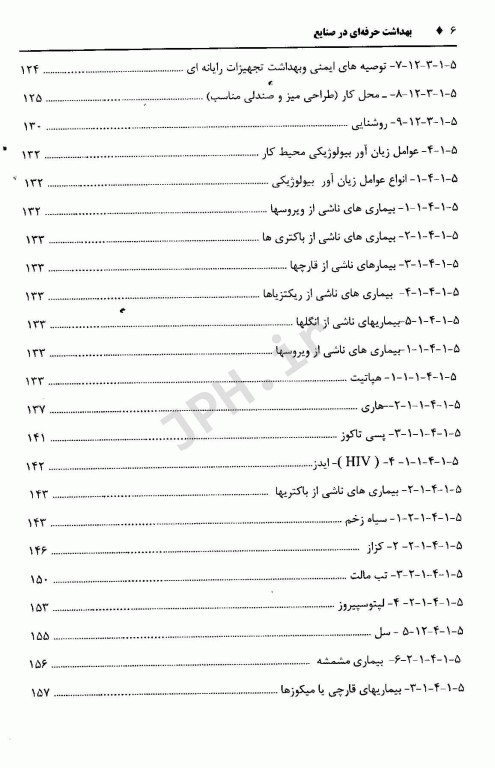 ۶ ♦ بهداشت حرفه‌ای در صنایع
۵-۱-۳-۱۲-۷- توصیه های ایمنی وبهداشت تجهیزات رایانه ای ........ ۱۲۴
۵-۱-۳-۱۲-۸- ـ محل کار (طراحی میز و صندلی مناسب) ........ ۱۲۵
۵-۱-۳-۱۲-۹- روشنایی ........ ۱۳۰
۵-۱-۴- عوامل زیان آور بیولوژیکی محیط کار ........ ۱۳۲
۵-۱-۴-۱- انواع عوامل زیان آور بیولوژیکی ........ ۱۳۲
۵-۱-۴-۱-۱- بیماری های ناشی از ویروسها ........ ۱۳۲
۵-۱-۴-۱-۲- بیماری های ناشی از باکتری ها ........ ۱۳۳
۵-۱-۴-۱-۳- بیمارهای ناشی از قارچها ........ ۱۳۳
۵-۱-۴-۱-۴- بیماری های ناشی از ریکتزیاها ........ ۱۳۳
۵-۱-۴-۱-۵-بیماریهای ناشی از انگلها ........ ۱۳۳
۵-۱-۴-۱-۱-بیماری های ناشی از ویروسها ........ ۱۳۳
۵-۱-۴-۱-۱-۱- هپاتیت ........ ۱۳۳
۵-۱-۴-۱-۱-۲--هاری ........ ۱۳۷
۵-۱-۴-۱-۱-۳- پسی تاکوز ........ ۱۴۱
۵-۱-۴-۱-۱- ۴- ( HIV )- ایدز ........ ۱۴۲
۵-۱-۴-۱-۲- بیماری های ناشی از باکتریها ........ ۱۴۳
۵-۱-۴-۱-۲-۱- سیاه زخم ........ ۱۴۳
۵-۱-۴-۱-۲- ۲- کزاز ........ ۱۴۶
۵-۱-۴-۱-۲-۳- تب مالت ........ ۱۵۰
۵-۱-۴-۱-۲- ۴- لپتوسپیروز ........ ۱۵۳
۵-۱-۴-۱۲-۵ - سل ........ ۱۵۵
۵-۱-۴-۱-۲-۶- بیماری مشمشه ........ ۱۵۶
۵-۱-۴-۱-۳- بیماریهای قارچی یا میکوزها ........ ۱۵۷
JPH.ir